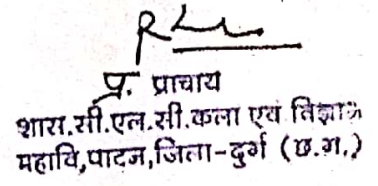 प्र. प्राचार्य
शास.सी.एल.सी.कला एवं विज्ञान
महावि,पाटन,जिला-दुर्ग (छ.ग.)